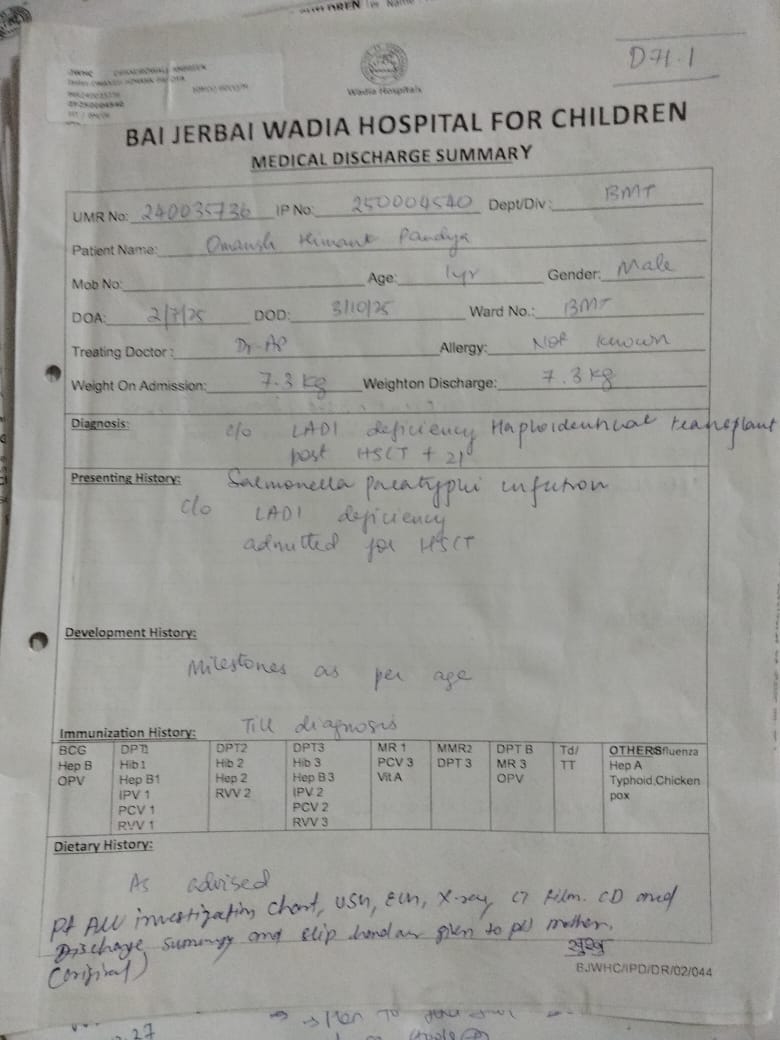 D71.1
Wadia Hospitals
BAI JERBAI WADIA HOSPITAL FOR CHILDREN
MEDICAL DISCHARGE SUMMARY
UMR No: 240035736 IP No: 250004540 Dept/Div: BMT
Patient Name: Omansh Himant Pandya
Mob No: Age: 1yr Gender: Male
DOA: 2/7/25 DOD: 3/10/25 Ward No.: BMT
Treating Doctor: Dr. AP Allergy: Not known
Weight On Admission: 7.3 kg Weighton Discharge: 7.3 kg
Diagnosis: c/o LAD1 deficiency Haploidentical transplant
post HSCT + 21
Presenting History: Salmonella paratyphi infection
c/o LAD1 deficiency
admitted for HSCT
Development History:
Milestones as per age
Immunization History: Till diagnosis
BCG DPT1 DPT2 DPT3 MR 1 MMR2 DPT B Td/ OTHERSfluenza
Hep B Hib1 Hib 2 Hib 3 PCV 3 DPT 3 MR 3 TT Hep A
OPV Hep B1 Hep 2 Hep B3 Vit A OPV Typhoid,Chicken
IPV 1 RVV 2 IPV 2 pox
PCV 1 PCV 2
RVV 1 RVV 3
Dietary History:
As advised
Pt All investigation chart, USG, X-ray, CT Film. CD and
Discharge summary and slip given to pt mother.
(original)
BJWHC/IPD/DR/02/044